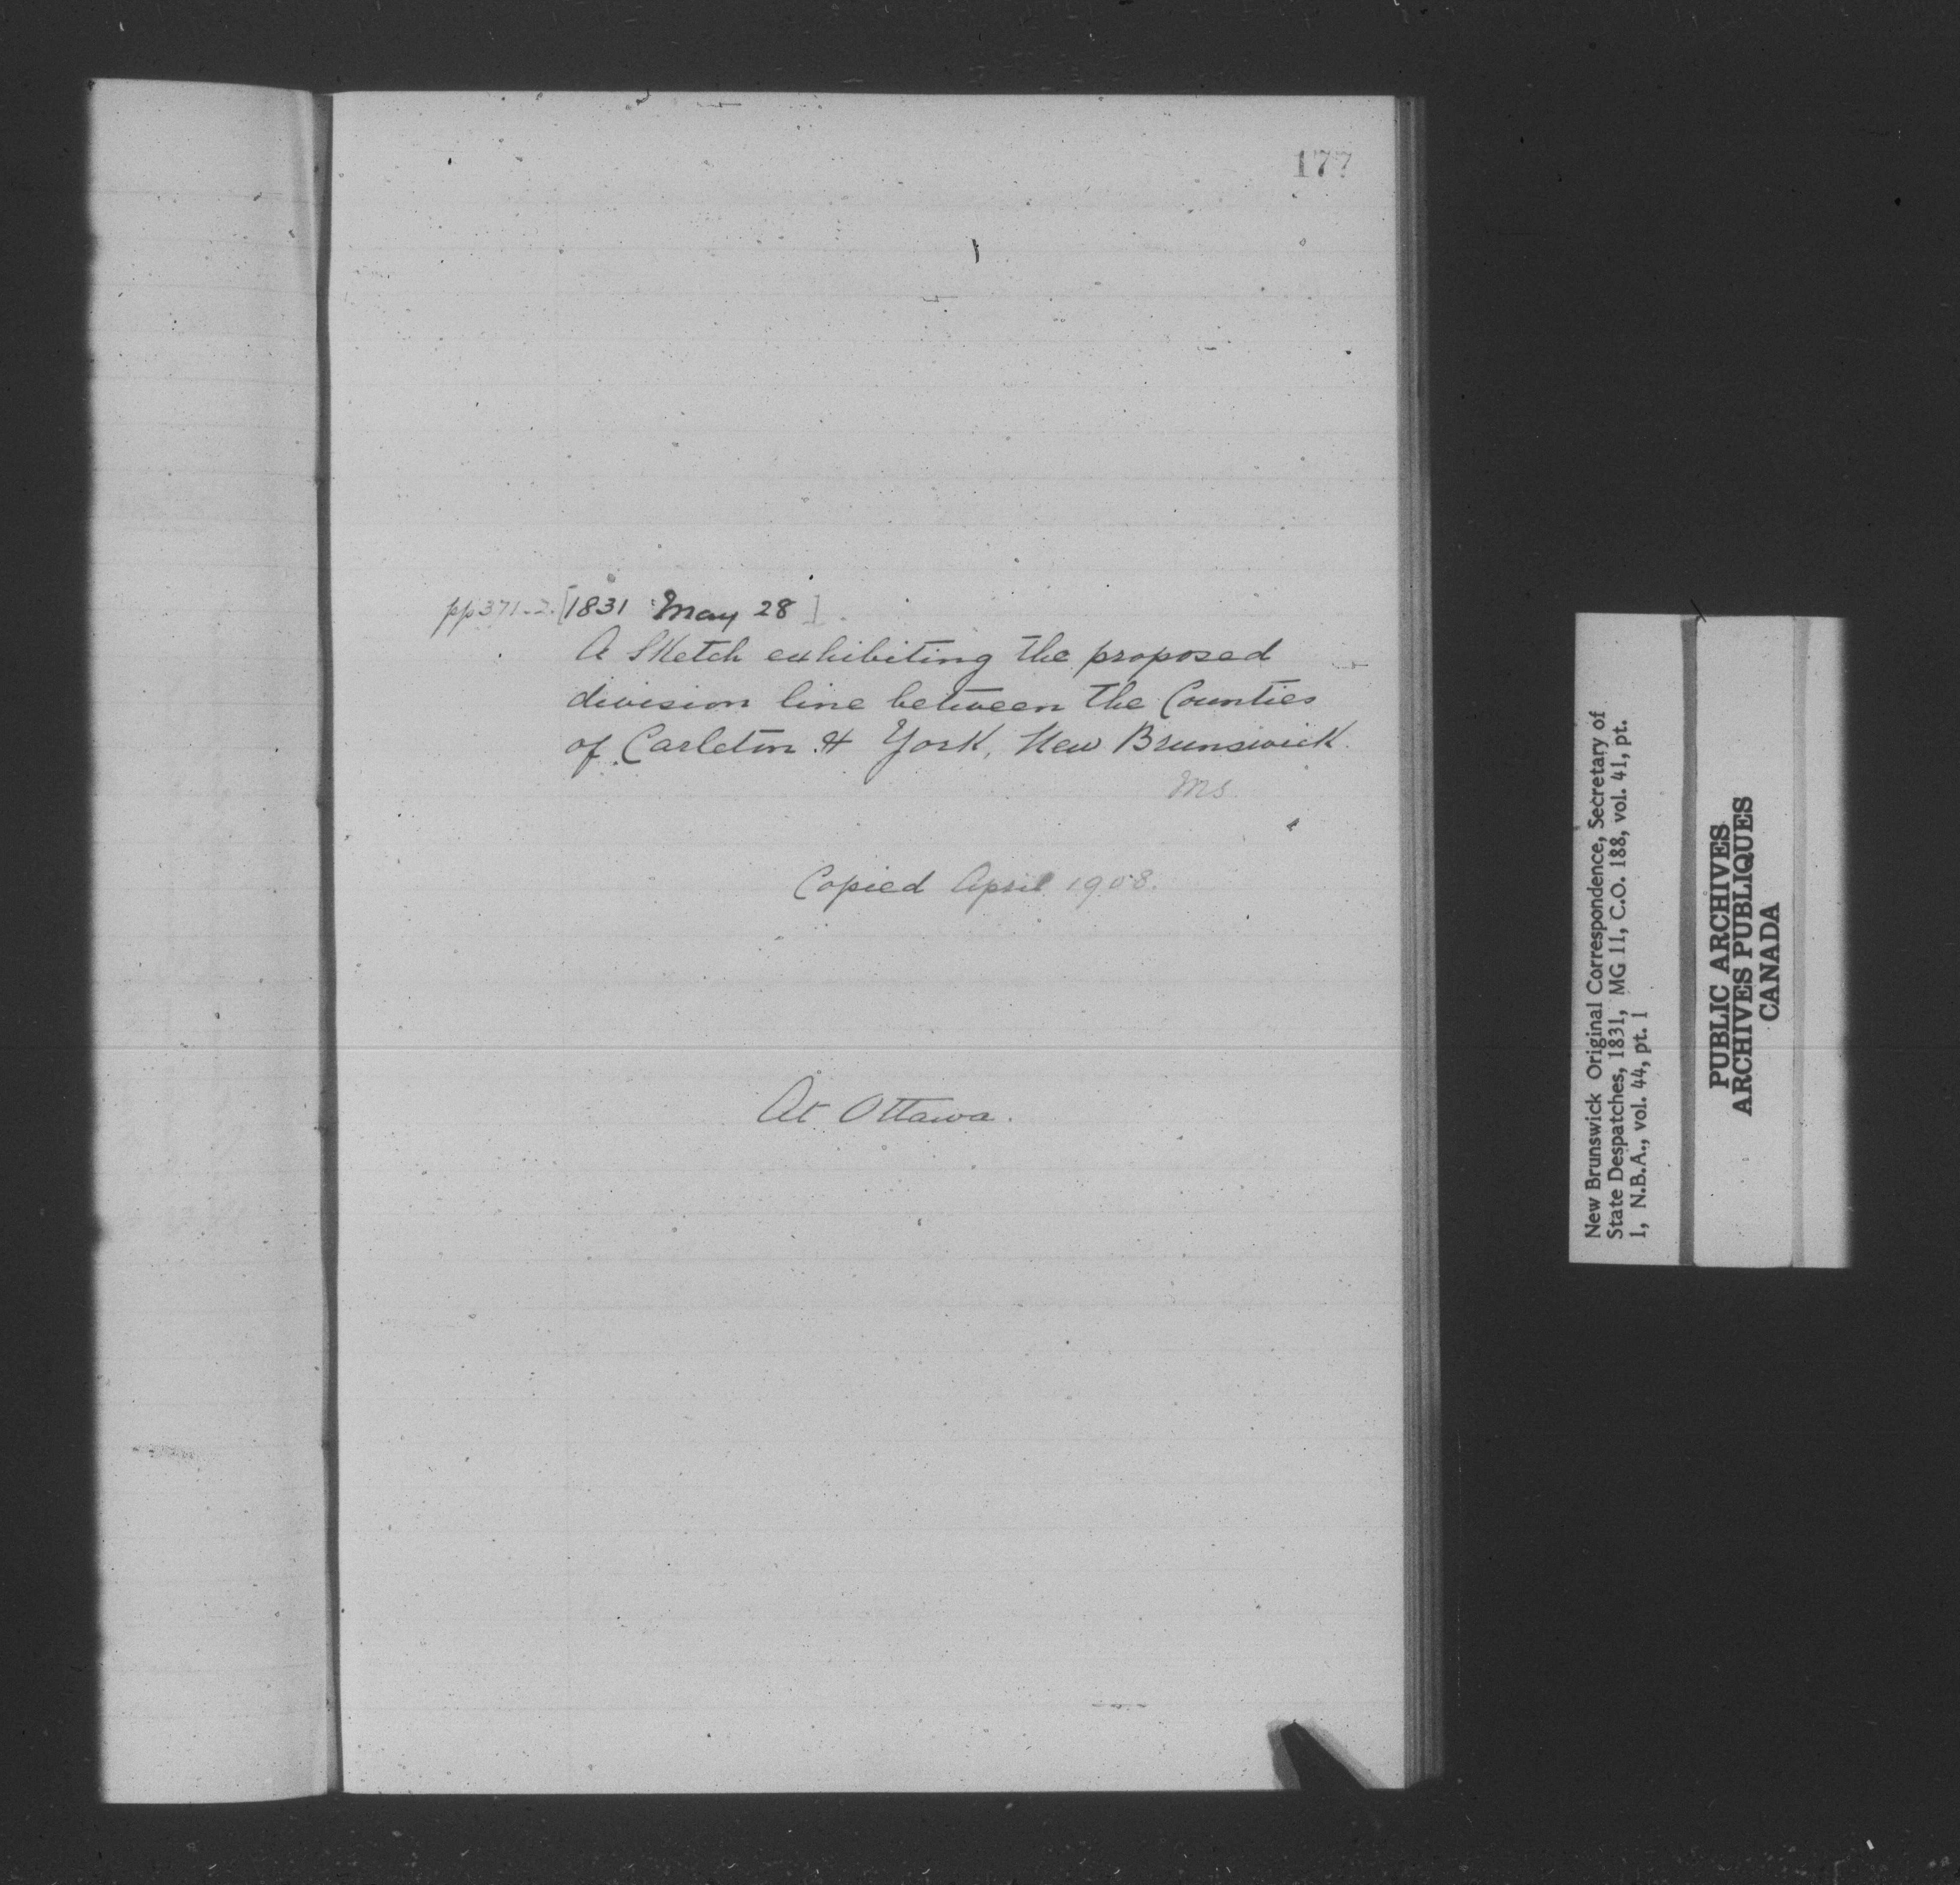 177
pp 371-2. [1831 May 28].
A Sketch exhibiting the proposed
division line between the Counties
of Carleton & York, New Brunswick.
Ms
Copied April 1908.
At Ottawa.
New Brunswick Original Correspondence, Secretary of
State Despatches, 1831, MG 11, C.O. 188, vol. 41, pt.
1, N.B.A., vol. 44, pt. 1
PUBLIC ARCHIVES
ARCHIVES PUBLIQUES
CANADA